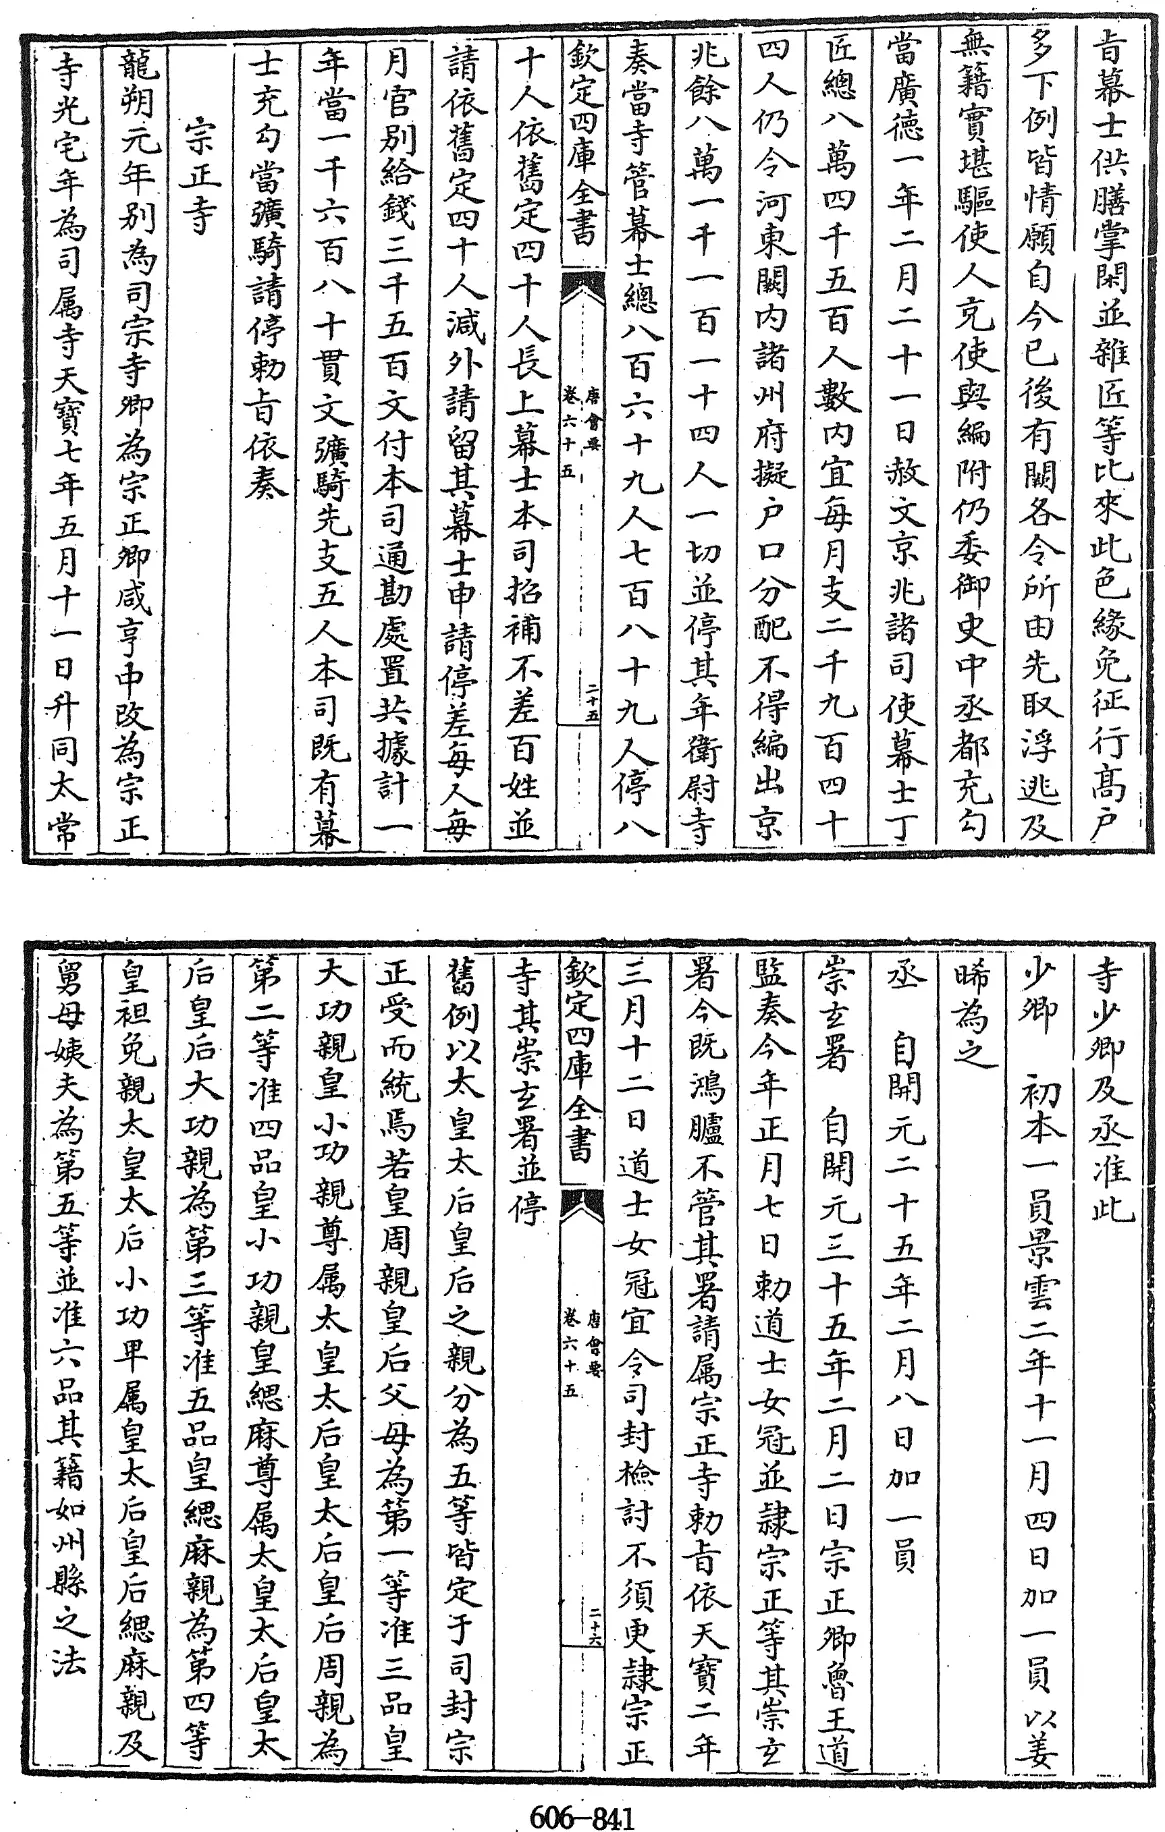 旨幕士供膳掌閑並雜匠等比來此色緣免征行髙户
多下例皆情願自今已後有闕各令所由先取浮逃及
無籍實堪驅使人充使與編附仍委御史中丞都充勾
當廣德一年二月二十一日赦文京兆諸司使幕士丁
匠總八萬四千五百人數内宜每月支二千九百四十
四人仍令河東闗内諸州府擬户口分配不得編出京
兆餘八萬一千一百一十四人一切並停其年衛尉寺
奏當寺管幕士總八百六十九人七百八十九人停八
欽定四庫全書
唐會要
卷六十五
二十五
十人依舊定四十人長上幕士本司招補不差百姓並
請依舊定四十人減外請留其幕士申請停差每人每
月官别給錢三千五百文付本司通勘處置共據計一
年當一千六百八十貫文彍騎先支五人本司既有幕
士充勾當彍騎請停勅旨依奏
宗正寺
龍朔元年别為司宗寺卿為宗正卿咸亨中改為宗正
寺光宅年為司属寺天寶七年五月十一日升同太常
寺少卿及丞准此
少卿　初本一員景雲二年十一月四日加一員以姜
晞為之
丞　自開元二十五年二月八日加一員
崇玄署　自開元三十五年二月二日宗正卿魯王道
監奏今年正月七日勅道士女冠並隷宗正等其崇玄
署今既鴻臚不管其署請属宗正寺勅旨依天寶二年
三月十二日道士女冠宜令司封檢討不須更隷宗正
欽定四庫全書
唐會要
卷六十五
二十六
寺其崇玄署並停
舊例以太皇太后皇后之親分為五等皆定于司封宗
正受而統焉若皇周親皇后父母為第一等准三品皇
大功親皇小功親尊属太皇太后皇太后皇后周親為
第二等准四品皇小功親皇緦麻尊属太皇太后皇太
后皇后大功親為第三等准五品皇緦麻親為第四等
皇袒免親太皇太后小功卑属皇太后皇后緦麻親及
舅母姨夫為第五等並准六品其籍如州縣之法
606-841